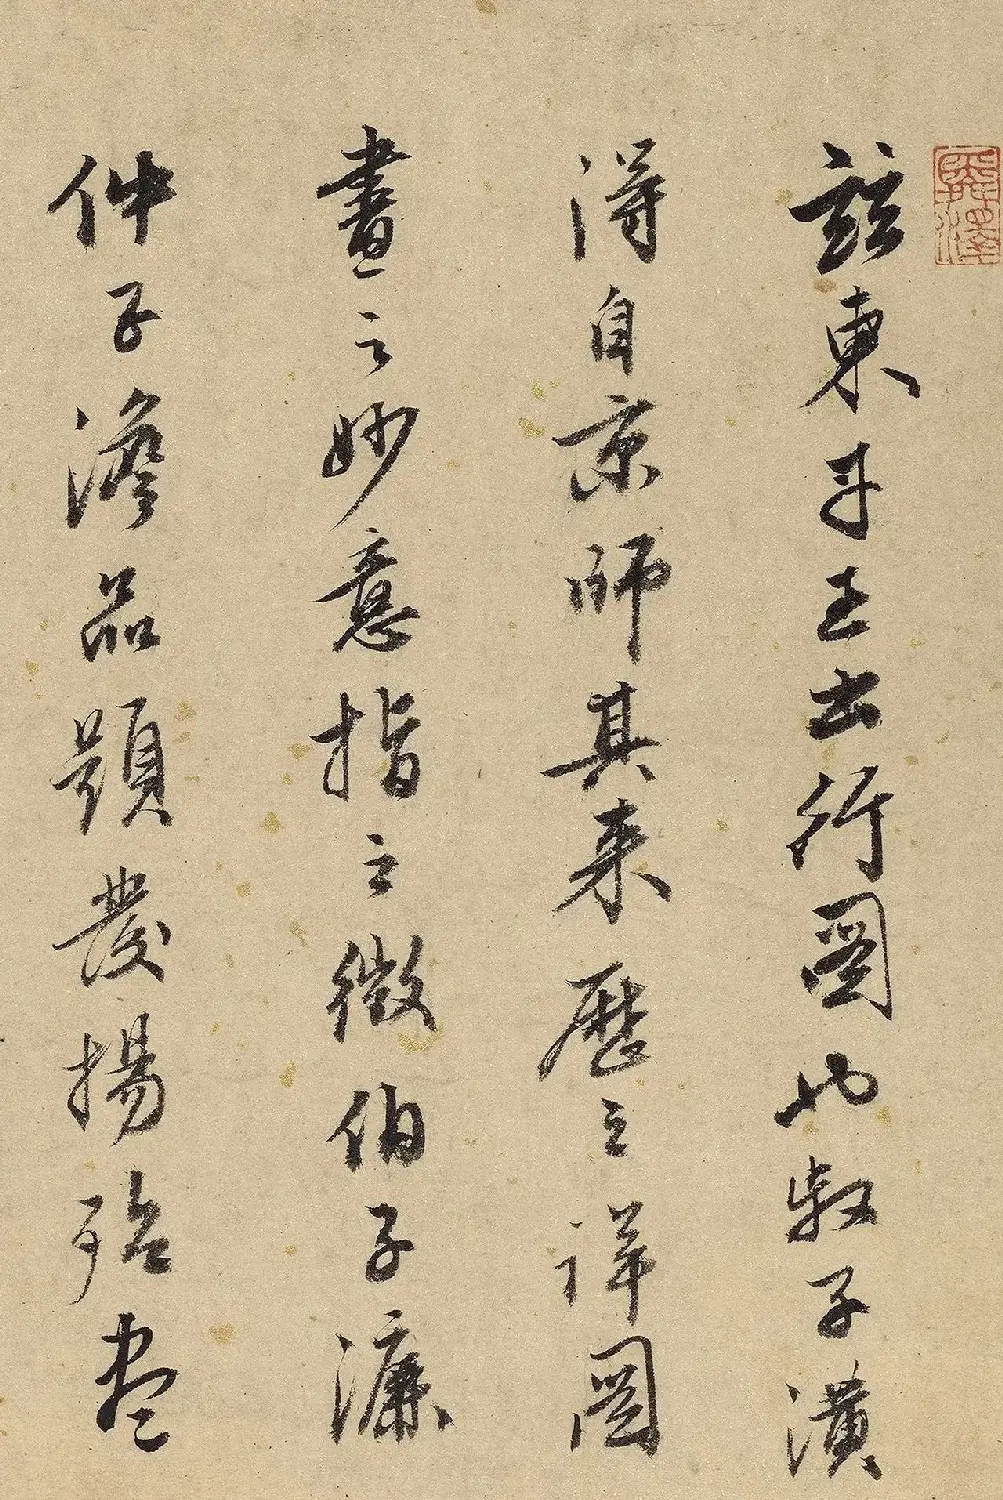 兹東丹王出行圖也叔子潢
得自京師其来歷之詳圖
畫之妙意指之微伯子濂
仲子澹品題發揚殆盡